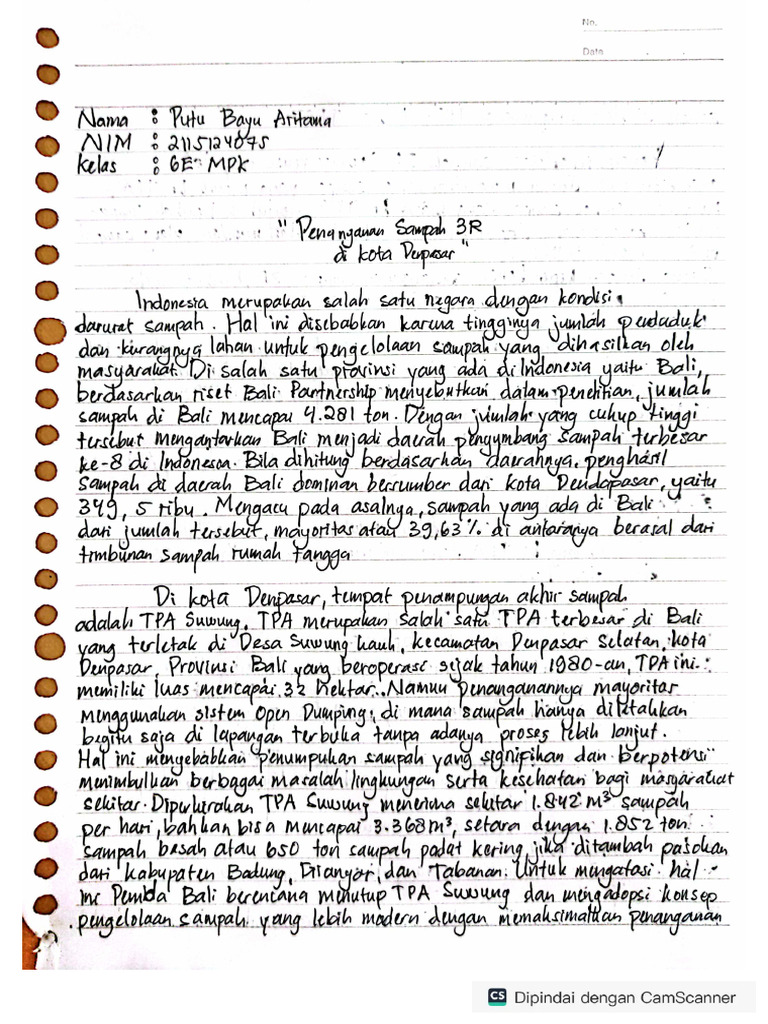 No.
Date
Nama : Putu Bayu Aritama
NIM : 2115124075
Kelas : 6E MPK
"Penanganan Sampah 3R
di Kota Denpasar"
Indonesia merupakan salah satu negara dengan kondisi
darurat sampah. Hal ini disebabkan karena tingginya jumlah penduduk
dan kurangnya lahan untuk pengelolaan sampah yang dihasilkan oleh
masyarakat. Di salah satu provinsi yang ada di Indonesia yaitu Bali,
berdasarkan riset Bali Partnership menyebutkan dalam penelitian, jumlah
sampah di Bali mencapai 4.281 ton. Dengan jumlah yang cukup tinggi
tersebut mengantarkan Bali menjadi daerah penyumbang sampah terbesar
ke-8 di Indonesia. Bila dihitung berdasarkan daerahnya, penghasil
Sampah di daerah Bali dominan bersumber dari kota Dendapasar, yaitu
349, 5 ribu. Mengacu pada asalnya, sampah yang ada di Bali
dari jumlah tersebut, mayoritas atau 39,63% di antaranya berasal dari
timbunan sampah rumah tangga
Di kota Denpasar, tempat penampungan akhir sampah
adalah TPA Suwung. TPA merupakan salah satu TPA terbesar di Bali
yang terletak di Desa Suwung kauh, kecamatan Denpasar Selatan, kota
Denpasar, Provinsi Bali yang beroperasi sejak tahun 1980-an, TPA ini
memiliki luas mencapai 32 hektar. Namun penanganannya mayoritas
menggunakan sistem Open Dumping, di mana sampah hanya diletakkan
begitu saja di lapangan terbuka tanpa adanya proses lebih lanjut.
Hal ini menyebabkan penumpukan sampah yang signifikan dan berpotensi
menimbulkan berbagai masalah lingkungan serta kesehatan bagi masyarakat
sekitar. Diperkirakan TPA Suwung menerima sekitar 1.842 m³ sampah
per hari, bahkan bisa mencapai 3.368 m³, setara dengan 1.852 ton
sampah basah atau 650 ton sampah padat kering jika ditambah pasokan
dari kabupaten Badung, Gianyar, dan Tabanan. Untuk mengatasi hal
ini Pemda Bali berencana menutup TPA Suwung dan mengadopsi konsep
pengelolaan sampah yang lebih modern dengan memaksimalkan penanganan
CS Dipindai dengan CamScanner